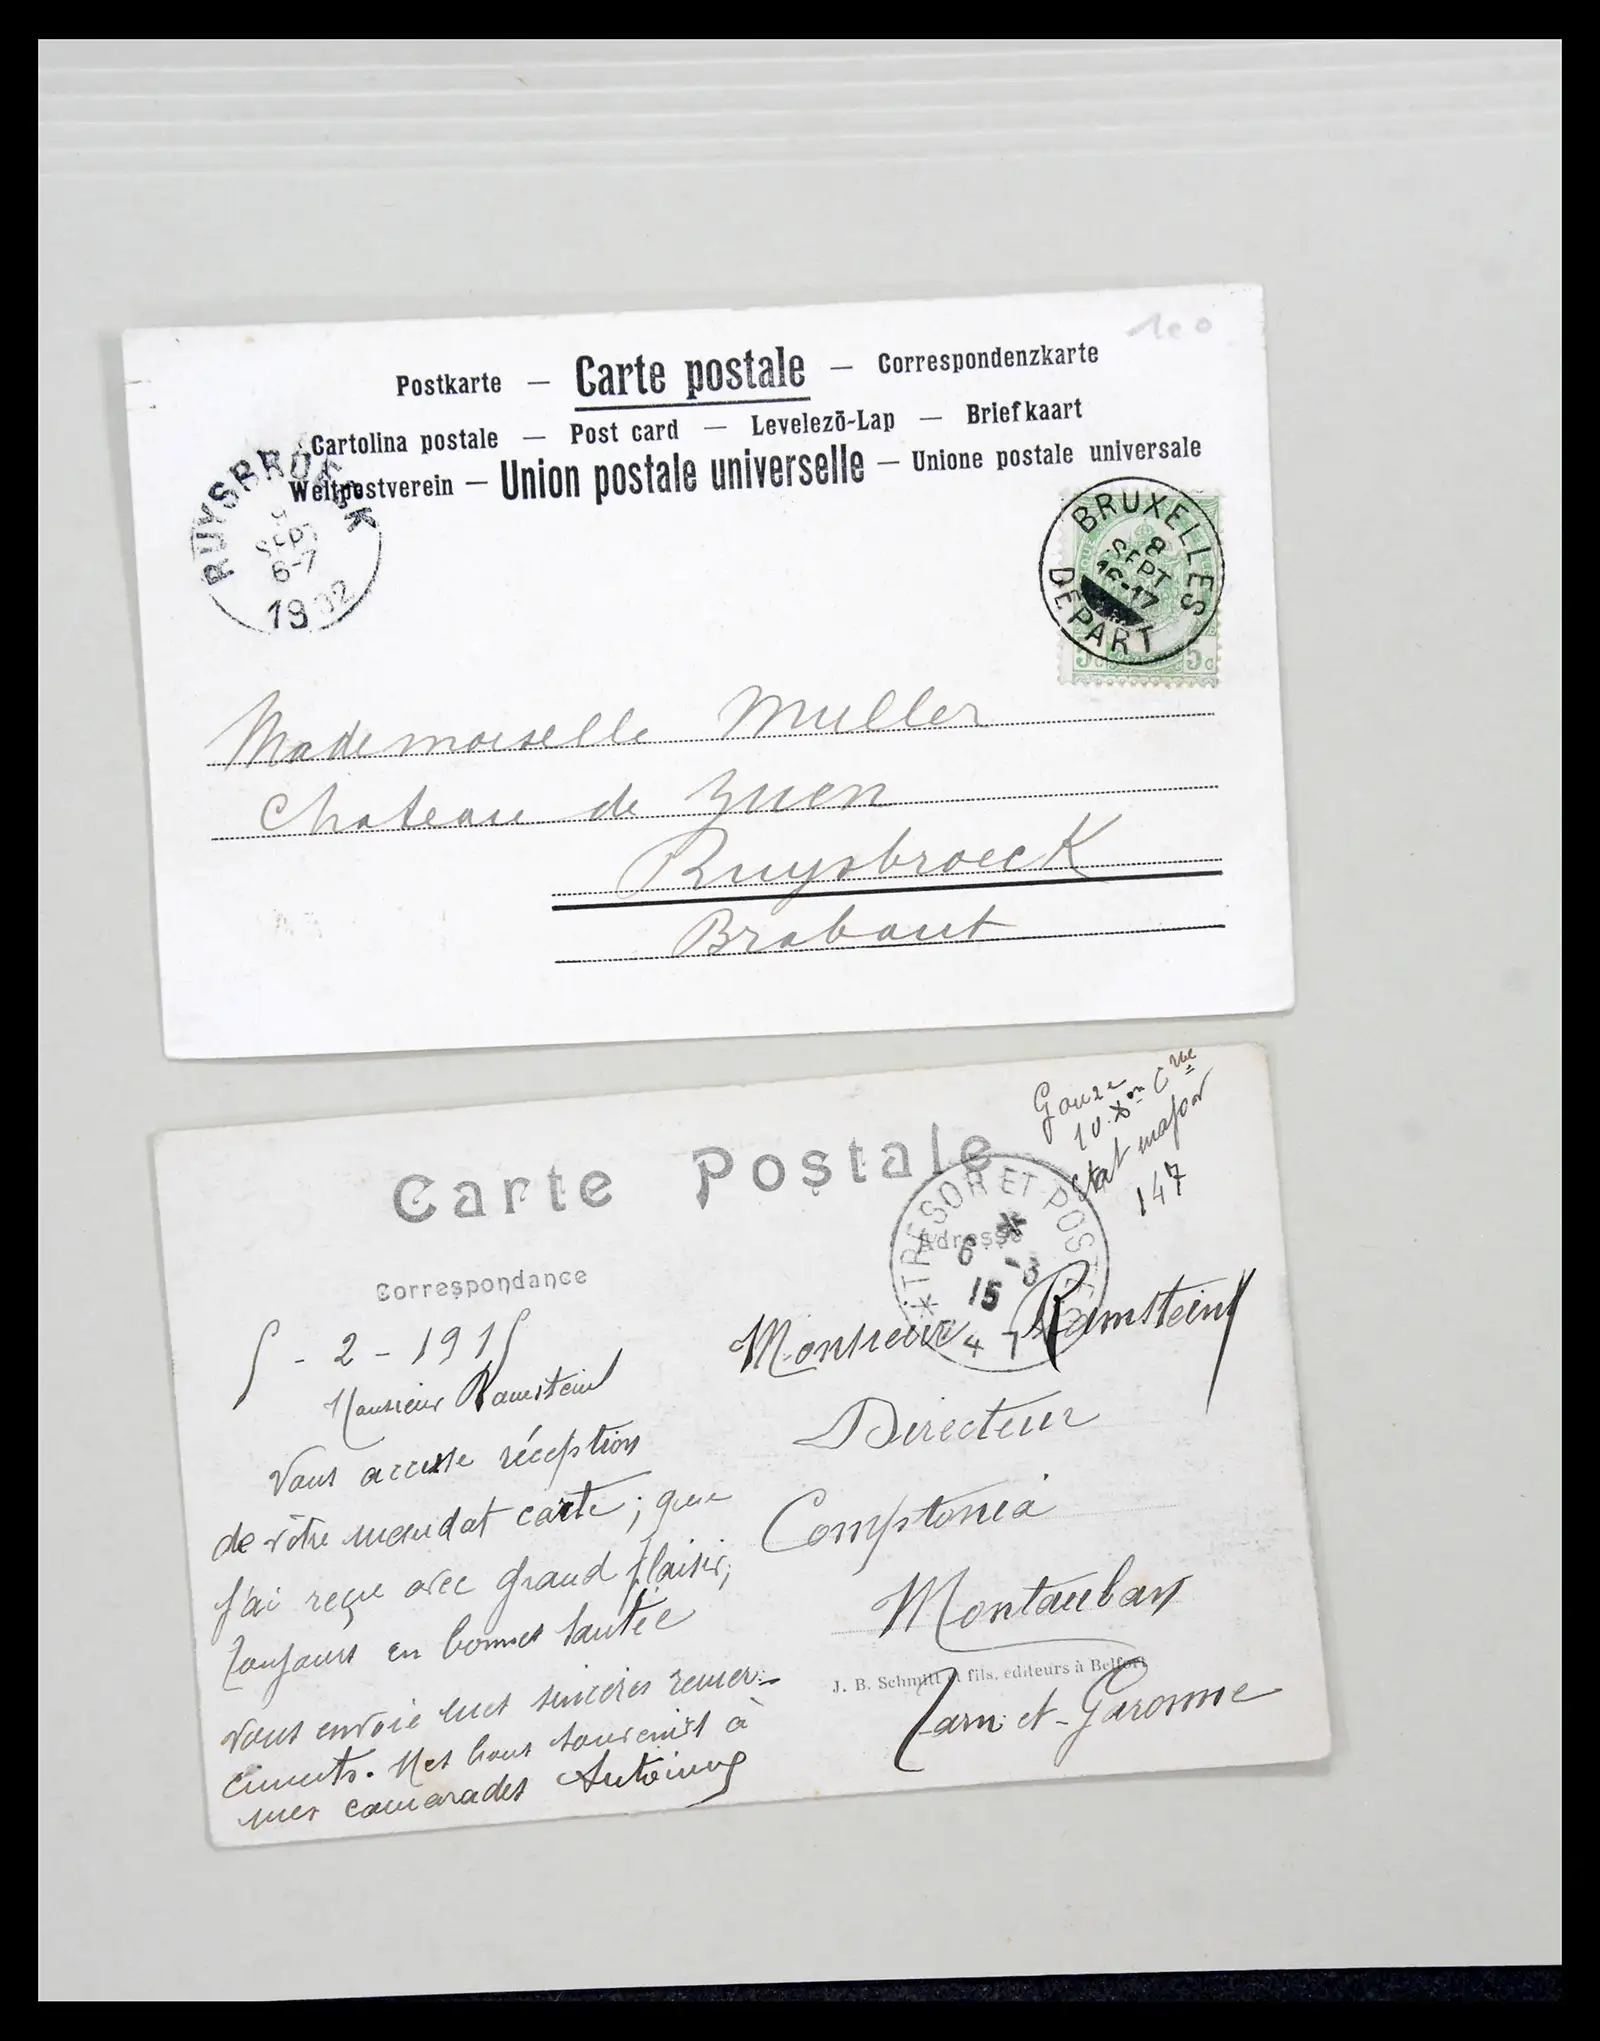 1e0
Postkarte — Carte postale — Correspondenzkarte
Cartolina postale — Post card — Levelezõ-Lap — Briefkaart
Weltpostverein — Union postale universelle — Unione postale universale
RUYSBROECK
SEPT
6-7
1902
BRUXELLES
8
SEPT
16-17
DEPART
5c 5c
Mademoiselle Muller
Chateau de Zuen
Ruysbroeck
Brabant
Gouze
10. Xon Cme
Etat major
147
Carte Postale
TRESOR ET POSTES
6 -3
15
47
Adresse
Correspondance
5 - 2 - 1915
Monsieur Ramstein
Vous accuse réception
de vôtre mandat carte; que
j'ai reçu avec grand plaisir;
Toujours en bonnes santée
vous envoie mes sincères remer-
ciments. Mes bons souvenirs à
mes camarades
Monsieur Ramstein
Directeur
Comptonia
Montauban
J. B. Schmitt & fils, éditeurs à Belfort
Tarn-et-Garonne